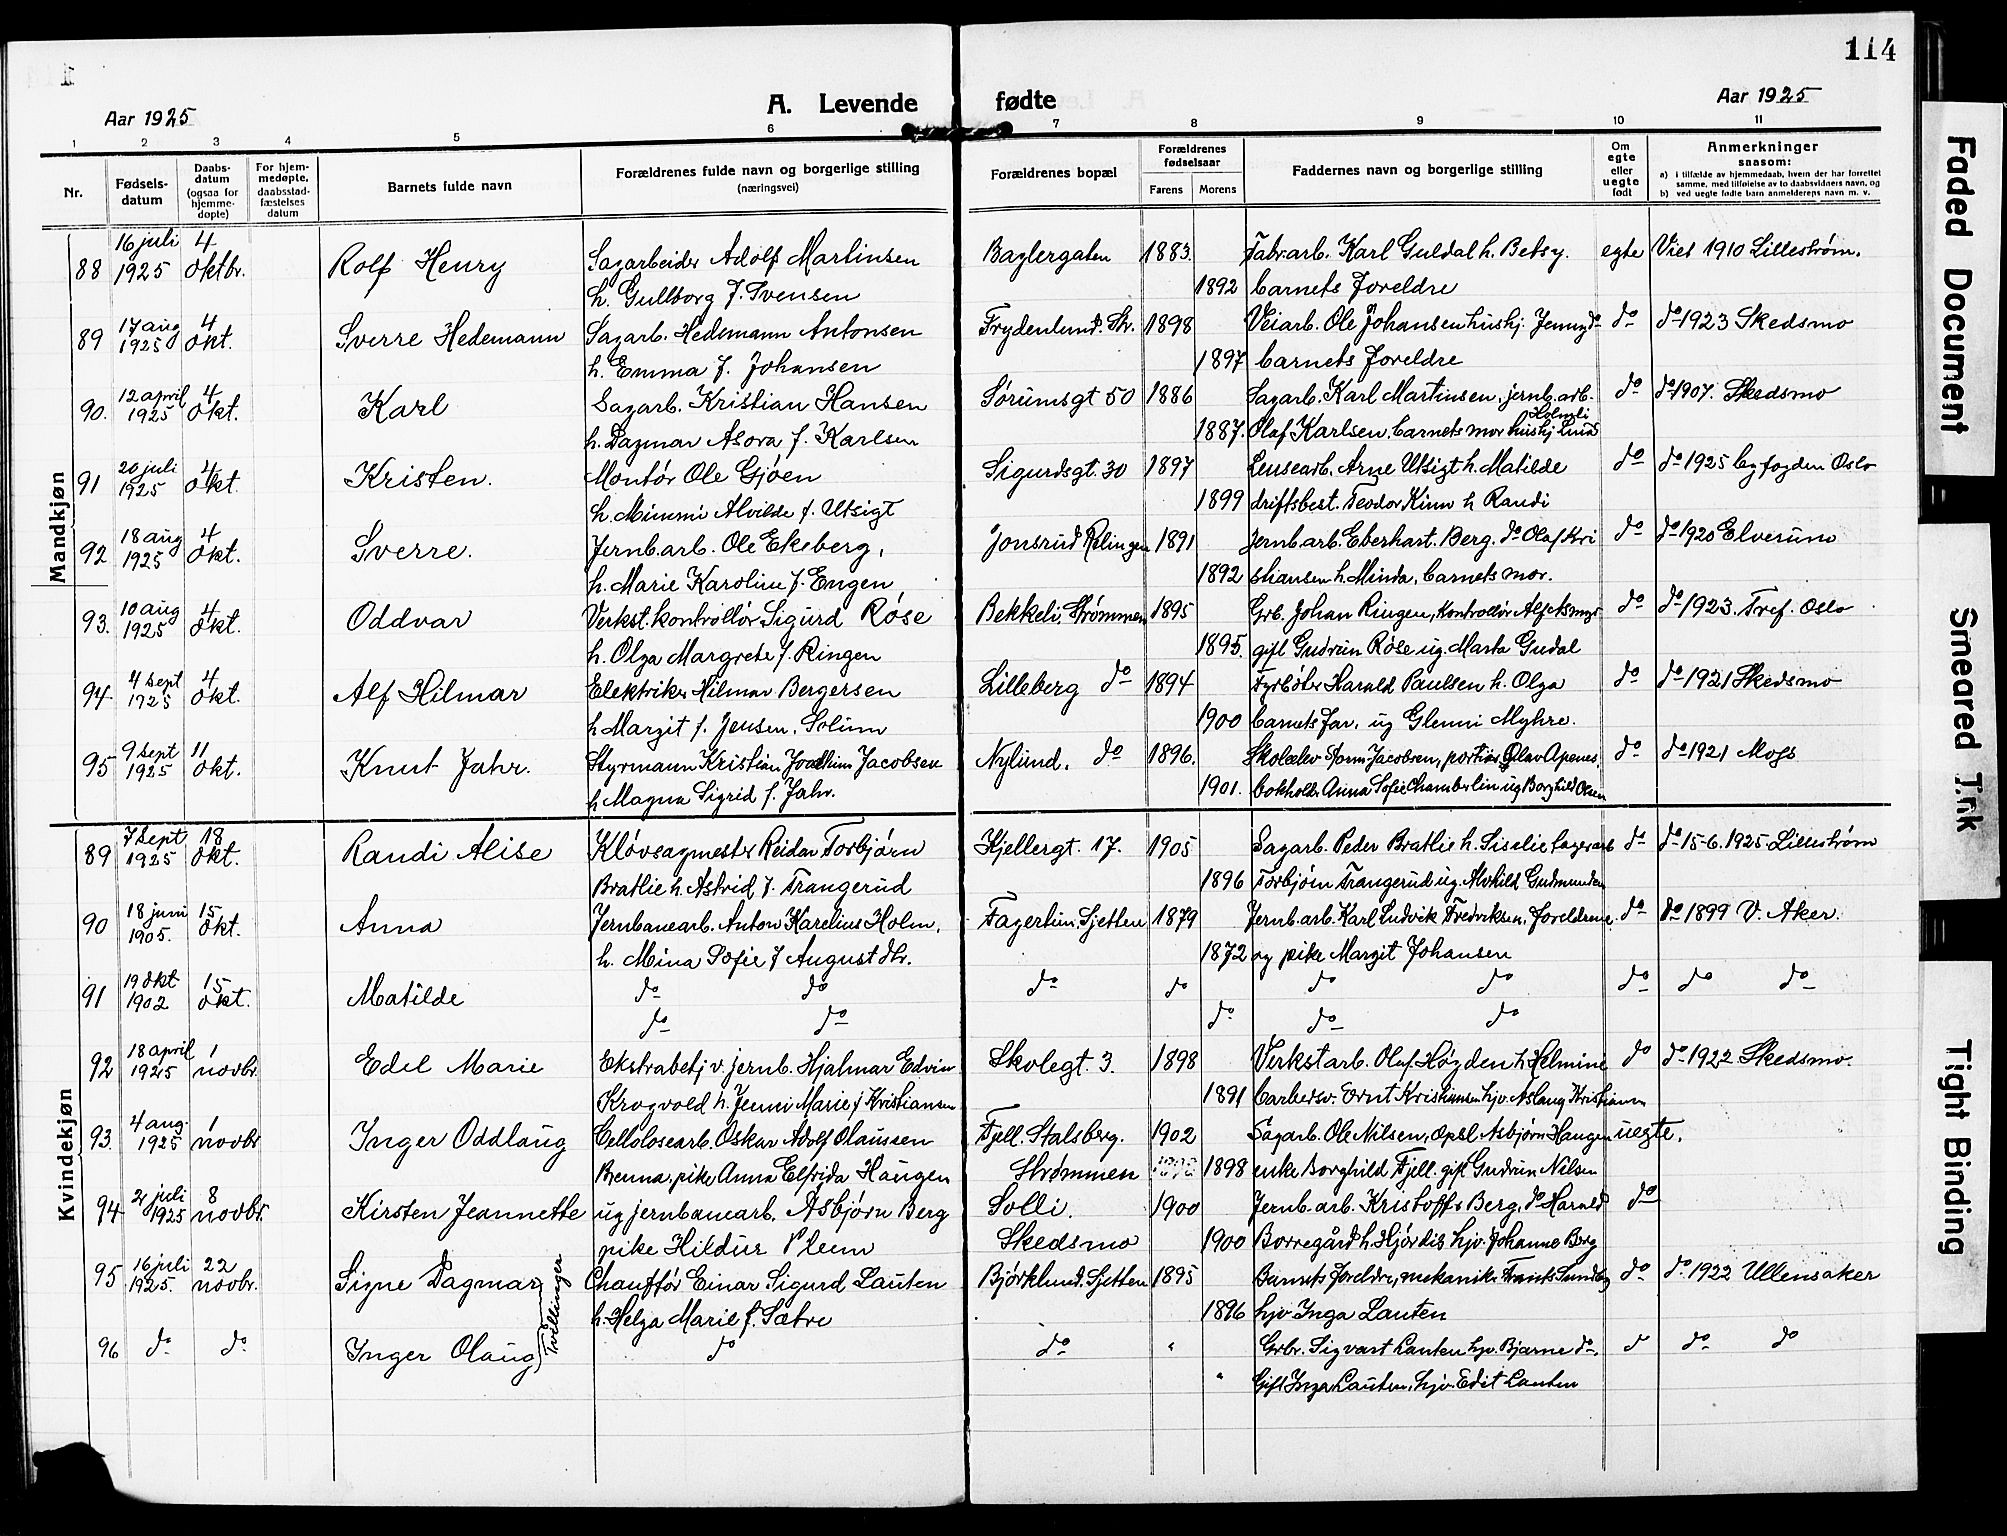 114
Aar 1925
A. Levende fødte
Aar 1925
1 2 3 4 5 6 7 8 9 10 11
Nr. Fødsels-datum Daabs-datum (ogsaa for hjemme-døpte) For hjem-medøpte, daabsstad-fæstelses datum Barnets fulde navn Forældrenes fulde navn og borgerlige stilling (næringsvei) Forældrenes bopæl Forældrenes fødselsaar Farens Morens Faddernes navn og borgerlige stilling Om egte eller uegte født Anmerkninger saasom:
a) i tilfælde av hjemmedaab, hvem der har forrettet samme, med tilføielse av to daabsvidners navn, og
b) ved uegte fødte barn anmelderens navn m. v.
Mandkjøn
88 16 juli 1925 4 oktbr. Rolf Henry Sagarbeider Adolf Martinsen Baglergaten 1883. Fabr.arb. Karl Guldal h. Betsy. egte Viet 1910 Lillestrøm.
h. Gullborg f. Svensen 1892 barnets foreldre
89 17 aug 1925 4 okt. Sverre Hedemann Sagarb. Hedemann Antonsen Frydenlund. Str. 1898 Veiarb. Ole Johansen hushj. Jenny do do do 1923 Skedsmo
h. Emma f. Johansen 1897 barnets foreldre
90. 12 april 1925 4 okt. Karl Sagarb. Kristian Hansen Sørumsgt 50 1886 Sagarb. Karl Martinsen, jernb.arb. do do 1907. Skedsmo
h. Dagmar Asora f. Karlsen 1887. Olaf Karlsen, barnets mor hushj Holmli
91 20 juli 1925 4 okt. Kristen. Montør Ole Gjøen Sigurdsgt. 30 1897 Lensearb. Arne Utsigt h. Matilde do do 1925 byfogden Oslo
h. Mimmi Alvilde f. Utsigt 1899 driftsbest. Teodor Kinn h Randi
92 18 aug 1925 4 okt. Sverre. Jernb.arb. Ole Ekeberg, Jonsrud Rælingen 1891 Jernb.arb. Eberhart. Berg. do Olaf Kri do do 1920 Elverum
h. Marie Karoline f. Engen 1892 stiansen h. Minda, barnets mor.
93. 10 aug 1925 4 okt. Oddvar Verkst. kontrollør Sigurd Røse Bekkeli, Strømmen 1895 Grb. Johan Ringen, Kontrollør Alf do do 1923. Tref. Oslo
h. Olga Margrete f. Ringen 1895. gift Gudrun Røse ug. Marta Gudal
94 4 sept 1925 4 okt. Alf Hilmar Elektriker Hilmar Bergersen Lilleberg do 1894 Fyrbøter Harald Paulsen h. Olga do do 1921 Skedsmo
h Margit f. Jensen. Solum 1900 barnets far, ug Glenni Myhre.
95 9 sept 1925 11 okt. Knut Jahr. Styrmann Kristian Joachim Jacobsen Nylund. do 1896. Skoleelev Jacobsen, portier Olav Apenes, do do 1921 Moss
h Magna Sigrid f. Jahr. 1901. bokholder Anna Sofie Chamberlin ug Borghild Olsen
Kvindekjøn
89 7 sept 1925 18 okt. Randi Alise Kløvsagmester Reidar Torbjørn Kjellergt. 17. 1905 Sagarb. Peder Bratlie h. Siselie lagerarb do do 15-6. 1925. Lillestrøm
Bratlie h. Astrid f. Trangerud 1896 Torbjørn Trangerud ug. Alvhild Gudmundsen
90 18 juni 1905. 15 okt. Anna Jernbanearb. Anton Karelius Holm, Fagertun. Sjetten 1879 Jernb.arb. Karl Ludvik Fredriksen, foreldrene. do do 1899 V. Aker.
h. Mina Sofie f Augustdtr. 1872 og pike Margit Johansen
91 19 okt 1902 15 okt. Matilde do do do do do do do do do
do do do do do
92 18 april 1925 1 novbr. Edel Marie Ekstrabetj v. jernb. Hjalmar Edvin Skolegt. 3. 1898 Verkstarb. Olaf Høgden h Helmine do do 1922 Skedsmo.
Krogvold h. Jenni Marie f Kristiansen 1891 barbersv. Ernt Kristiansen hjv. Aslaug Kristiansen
93. 4 aug. 1925 1 novbr Inger Oddlaug Cellolosearb. Oskar Adolf Olaussen Fjell. Stalsberg. 1902 Sagarb. Ole Nilsen, opsl Asbjørn Haugen uegte.
Brenna, pike Anna Elfrida Haugen Strømmen 1898 enke Borghild Fjell. gift Gudrun Nilsen
94 21 juli 1925 8 novbr. Kirsten Jeannette ug jernbanearb. Asbjørn Berg Solli. 1900 Jernb.arb. Kristoffer Berg, do Harald do
pike Hildur Pleem Skedsmo 1900 Borregård h. Hjørdis hjv. Johanne Berg
95 16 juli 1925. 22 novbr. Signe Dagmar Tvillinger Chauffør Einar Sigurd Lauten Bjørklund. Sjetten 1895 Barnets foreldre, mekaniker Frants Sundby do do 1922 Ullensaker
h. Helga Marie f. Sætre 1896 hjv Inga Lauten
96 do do Inger Olaug do do " Grbr. Sigvart Lauten hjv. Bjarne do. do do do
" Gift Inga Lauten, hjv. Edit Lauten
Faded Document
Smeared Ink
Tight Binding